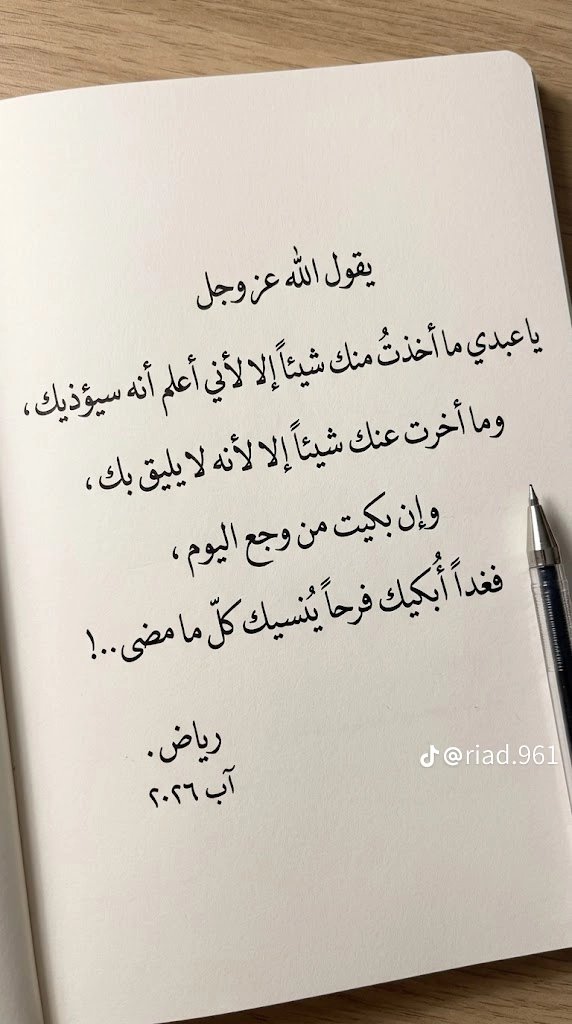 يقول الله عز وجل
يا عبدي ما أخذتُ منك شيئاً إلا لأني أعلم أنه سيؤذيك،
وما أخرت عنك شيئاً إلا لأنه لا يليق بك،
وإن بكيت من وجع اليوم،
فغداً أُبكيك فرحاً يُنسيك كلّ ما مضى..!
رياض.
آب ٢٠٢٦
@riad.961